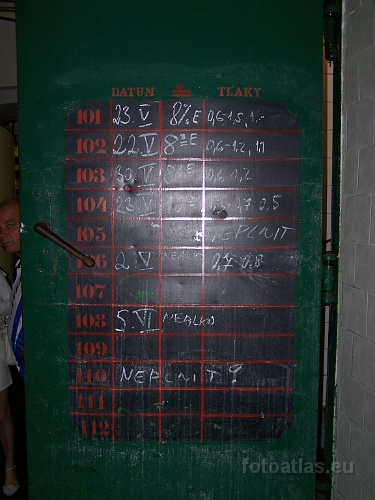 DATUM TLAKY
101 23. V 8% E 0,6-1,5, 1.-
102 22. V 8% E 0,6-1.2, 1,1
103 30. V 0,6 1,2
104 23 V 0,7 0.5
105 NEPLNIT
106 2. V NEALKO 0,7 0,8
107
108 5. VI NEALKO
109
110 NEPLNIT ?
111
112
fotoatlas.eu